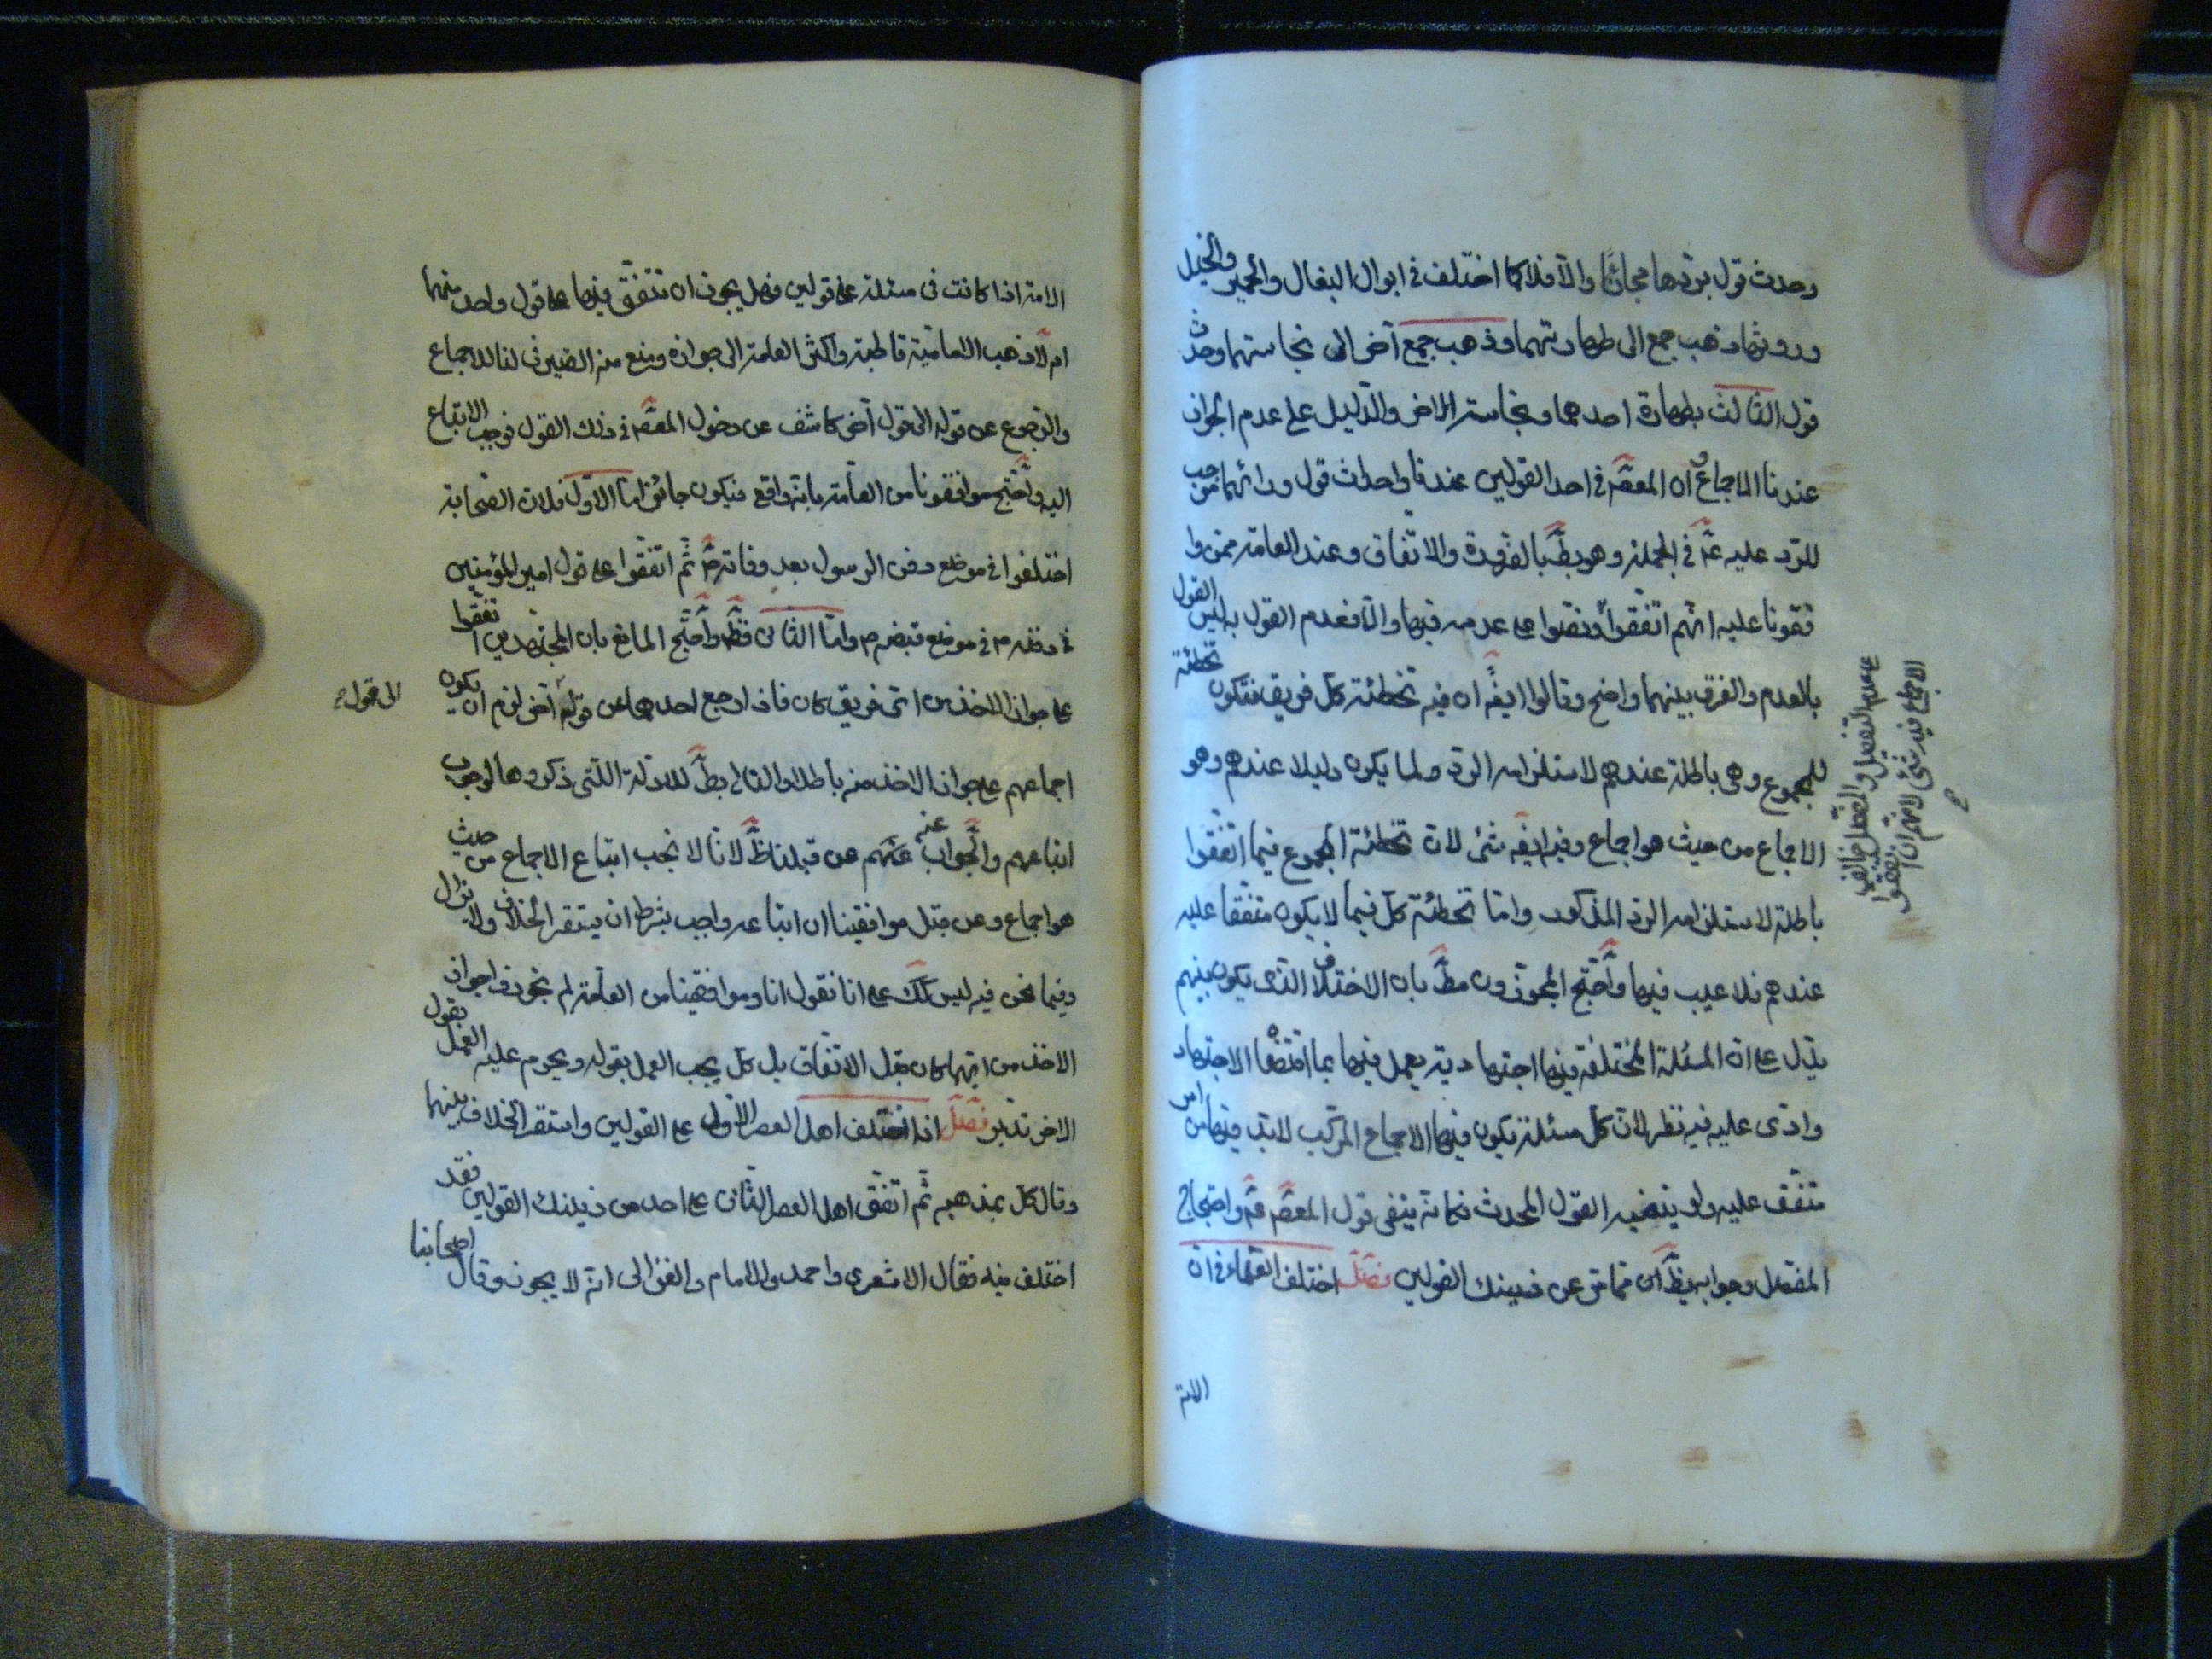 وحدث قول بردها مجانا والا فلا كما اختلف في ابوال البغال والحمير والخيل
وروثها ذهب جمع الى طهارتهما وذهب جمع آخر الى نجاستهما وحدث
قول الثالث بطهارة احدهما ونجاسة الاخر والدليل على عدم الجواز
عندنا الاجماع و ان المعصم في احد القولين عندنا واحداث قول ورائهما موجب
للرد عليه عم في الجملة وهو بط بالضرورة والاتفاق وعند العامة ممن وا
فقونا عليه انهم اتفقوا ونصوا على عدمه فيها والا فعدم القول به ليس القول
بالعدم والفرق بينهما واضح وقالوا ايضا ان فيه تخطئة كل فريق فتكون تخطئة
للمجموع وهى باطلة عندهم لاستلزامه الرد ولما يكون دليلا عندهم وهو
الاجماع من حيث هو اجماع وفيه ايضه شئ لان تخطئة المجموع فيما اتفقوا
باطلة لاستلزامه الرد المذكور واما تخطئة كل فيما لا يكون متفقا عليه
عندهم فلا عيب فيها واحتج المجوزون مط بان الاختلاف الذى يكون بينهم
يدل على ان المسئلة المختلفة فيها اجتهادية يعمل فيها بما اقتضاه الاجتهاد
وادى عليه فيه نظر لان كل مسئلة يكون فيها الاجماع المركب لابد فيها من امر
متفق عليه ولو ينفيه القول المحدث فكانه ينفى قول المعصم عم واحتجاج
المفصل وجوابه يظهر ان مما مر عن ذينك القولين فصل اختلف العلماء في ان
الامة
على عدم التفصيل والمفصل خالف
الاجماع فيه شئ لانهم ان اتفقوا
الامة اذا كانت فى مسئلة على قولين فهل يجوز ان تتفق فيها على قول واحد منهما
ام لا ذهب الامامية قاطبة واكثر العامة الى جوازه ومنع منه الصيرفى لنا الاجماع
والرجوع عن قوله الى قول آخر كاشف عن دخول المعصم في ذلك القول فوجب الاتباع
اليه واحتج موافقونا من العامة بانه واقع فيكون جائزا اما الاول فلان الصحابة
اختلفوا في موضع دفن الرسول بعد وفاته ص ثم اتفقوا على قول امير المؤمنين
في دفنه ص في موضع قبضه ص واما الثانى فظ واحتج المانع بان المجتهدين اتفقوا
على جواز الاخذ من اى فريق كان فاذا رجع احدهما عن قوله آخر لزم ان يكون
الى قول
اجماعهم على جواز الاخذ منه باطلا والتالى بط للادلة اللتى ذكروها لوجوب
اتباعهم والجواب عنه عنهم من قبلنا ظ لانا لا نجب اتباع الاجماع من حيث
هو اجماع وعن قبل موافقينا ان اتباعه واجب بشرط ان يستقر الخلاف ولا يزال
وفيما نحن فيه ليس كك على انا نقول انا وموافقينا من العامة لم نجوزوا جواز
الاخذ من ايهما كان قبل الاتفاق بل كل يجب العمل بقوله ويحرم عليه العمل بقول
الاخر تدبر فصل اذا اختلف اهل العصر الاول على القولين واستقر الخلاف بينهما
وقال كل بمذهبه ثم اتفق اهل العصر الثانى على احد من ذينك القولين فقد
اختلف فيه فقال الاشعرى واحمد والامام والغزالى انه لا يجوز وقال اصحابنا